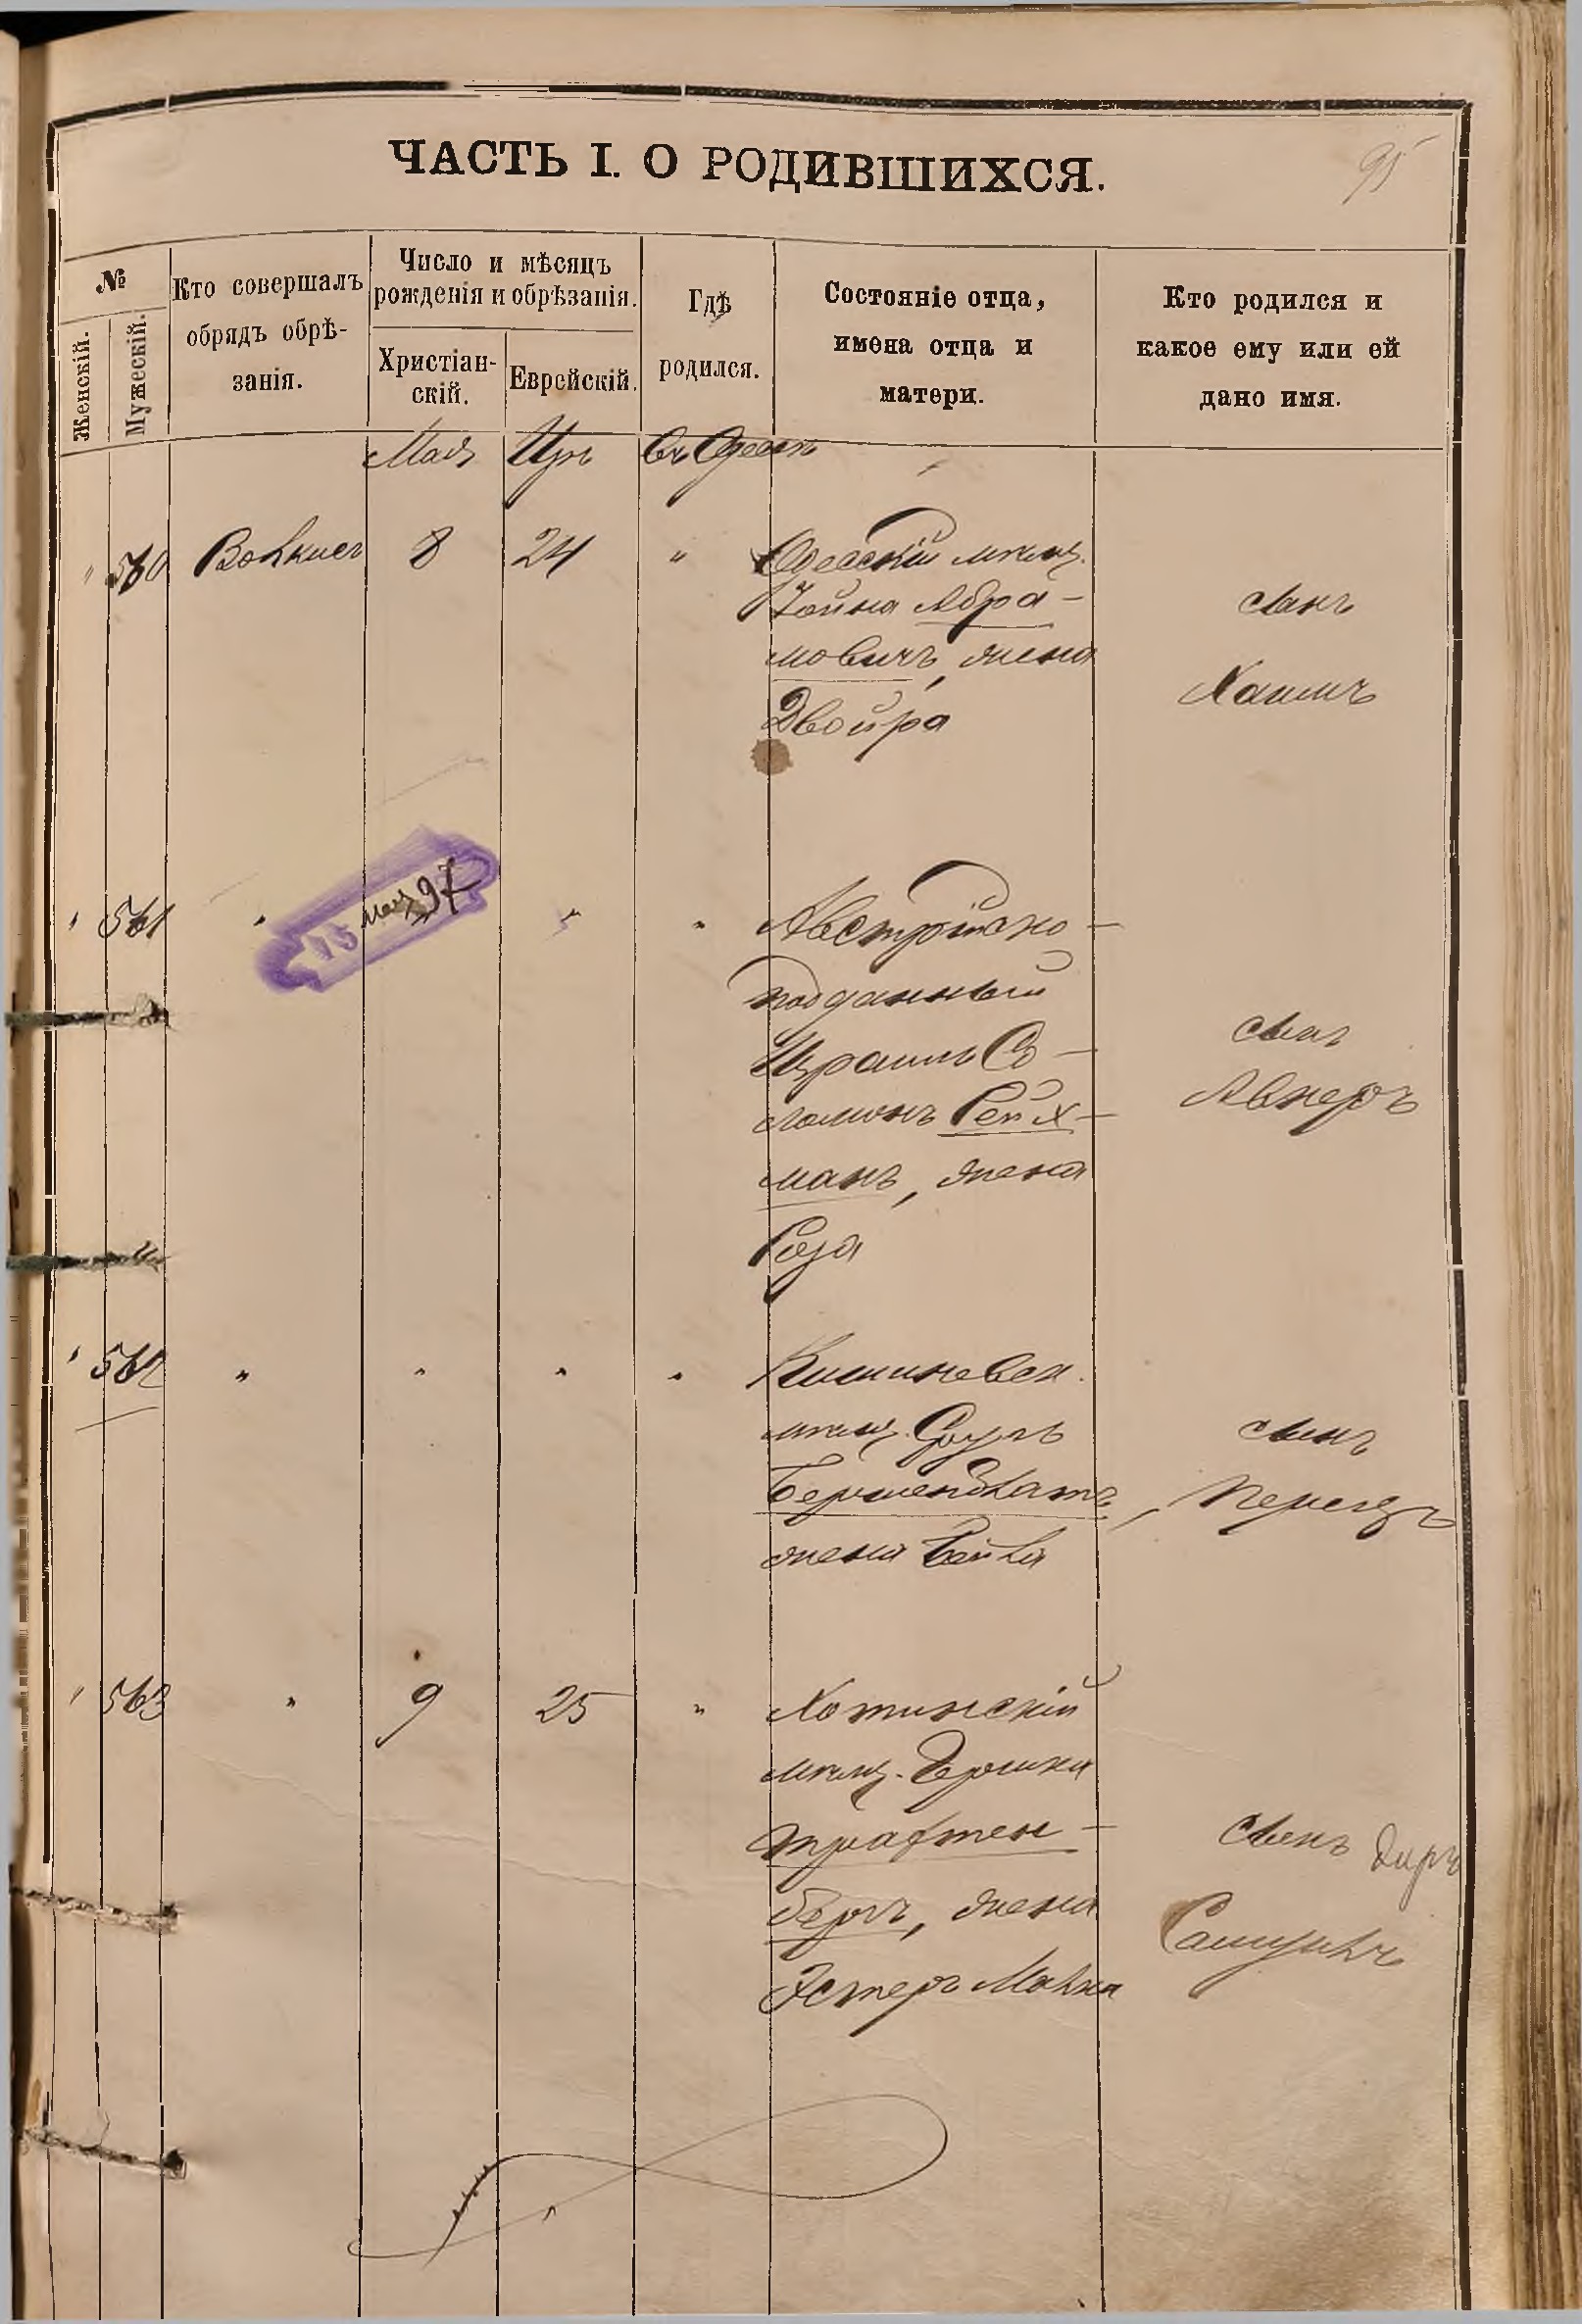 95
ЧАСТЬ I. О РОДИВШИХСЯ.
№
Женскій.
Мужескій.
Кто совершалъ
обрядъ обрѣ-
занія.
Число и мѣсяцъ
рожденія и обрѣзанія.
Христіан-
скій.
Еврейскій.
Гдѣ
родился.
Состояніе отца,
имена отца и
матери.
Кто родился и
какое ему или ей
дано имя.
Мая Іяръ Въ Одессѣ
" 560 8 24 " Одесскій мѣщ.
Іойна Абра-
мовичъ, жена
Двойра
сынъ
Хаимъ
" 561 " 15 97 " " Австрійско-
подданный
Израиль Со-
ломонъ Рейх-
манъ, жена
Роза
сынъ
Авнеръ
" 562 " " " " Кишиневск.
мѣщ. Сруль
жена Бейла
сынъ
Перецъ
" 563 " 9 25 " Хотинскій
мѣщ. Бершка
Трахтен-
бергъ, жена
Эстеръ Малка
сынъ
Самуилъ